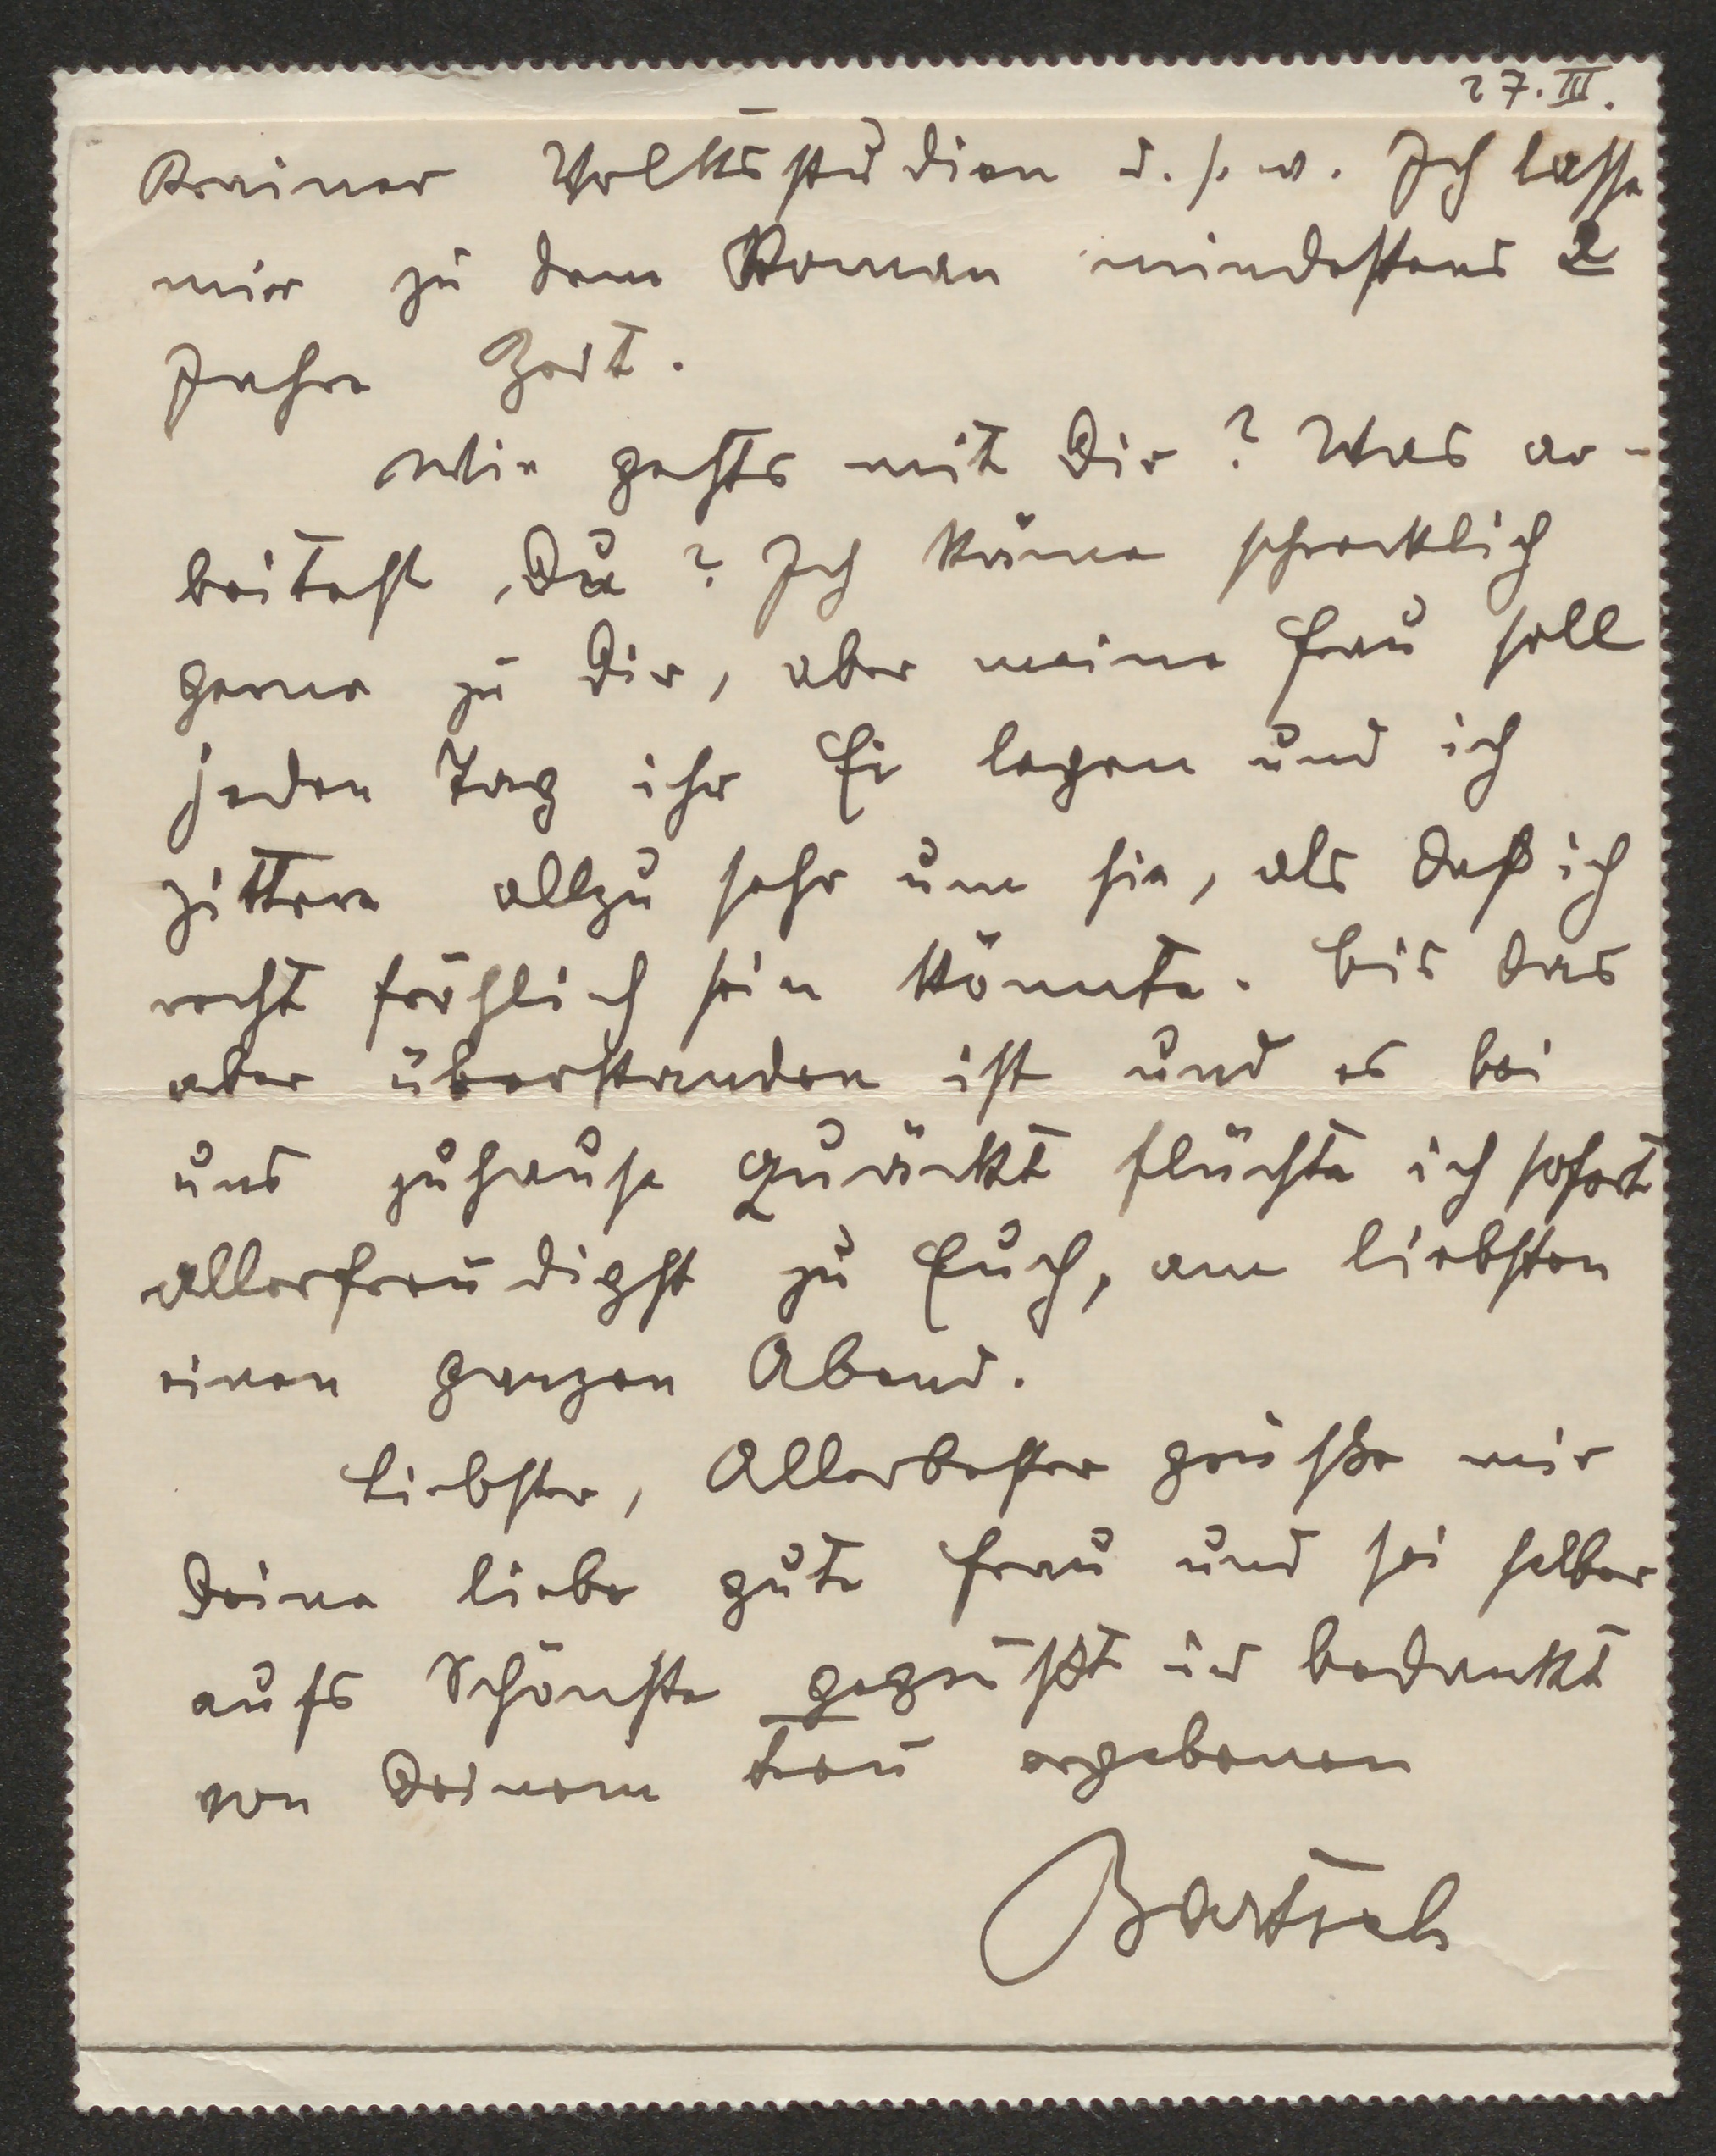 27. III.
Krainer Volksstudien u. s. w. Ich lasse
mir zu dem Roman mindestens 2
Jahre Zeit.
Wie gehts mit Dir? Was ar-
beitest Du? Ich käme schrecklich
gerne zu Dir, aber meine Frau soll
jeden Tag ihr Ei legen und ich
zittere allzu sehr um sie, als daß ich
recht fröhlich sein könnte. Bis das
aber überstanden ist und es bei
uns zuhause quäckt flüchte ich sofort
allerfreudigst zu Euch, am liebsten
einen ganzen Abend.
Liebster, Allerbester grüße mir
Deine liebe gute Frau und sei selber
aufs Schönste gegrüßt und bedankt
von Deinem treu ergebenen
Bartsch